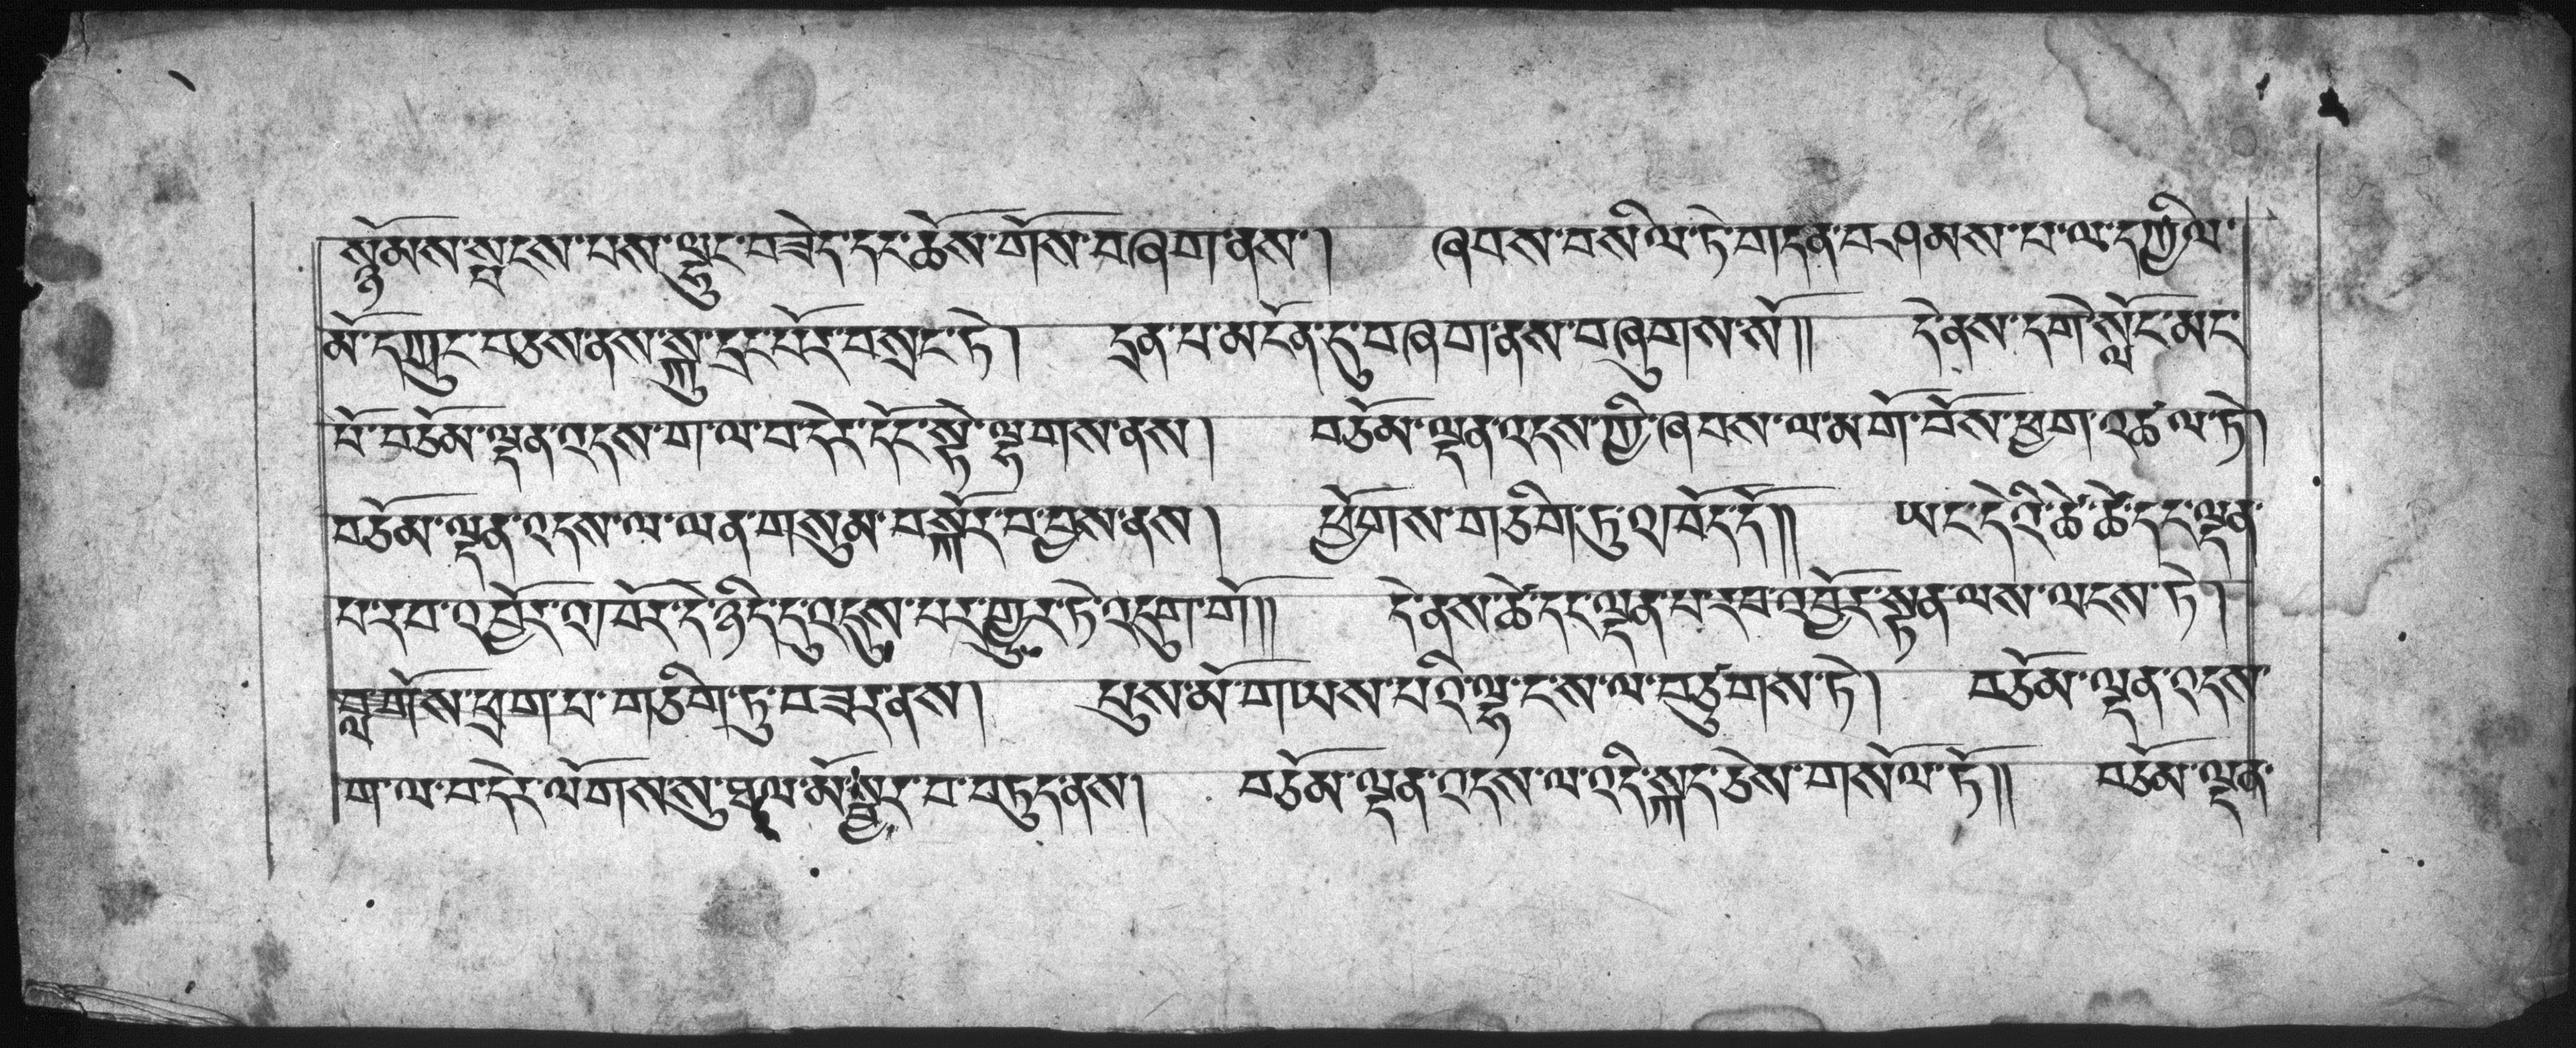 སྙོམས་སྤངས་པས་ལྷུང་བཟེད་དང་ཆོས་གོས་བཞག་ནས། ཞབས་བསིལ་ཏེ་གདན་བཤམས་པ་ལ་དཀྱིལ་
མོ་དཀྲུང་བཅས་ནས་སྐུ་དྲང་པོར་བསྲང་ཏེ། དྲན་པ་མངོན་དུ་བཞག་ནས་བཞུགས་སོ།། དེ་ནས་དགེ་སློང་མང་
པོ་བཅོམ་ལྡན་འདས་ག་ལ་བ་དེར་དོང་སྟེ་ལྷགས་ནས། བཅོམ་ལྡན་འདས་ཀྱི་ཞབས་ལ་མགོ་བོས་ཕྱག་འཚལ་ཏེ།
བཅོམ་ལྡན་འདས་ལ་ལན་གསུམ་བསྐོར་བ་བྱས་ནས། ཕྱོགས་གཅིག་ཏུ་འཁོད་དོ།། ཡང་དེའི་ཚེ་ཚེ་དང་ལྡན་
པ་རབ་འབྱོར་འཁོར་དེ་ཉིད་དུ་འདུས་པར་གྱུར་ཏེ་འདུག་གོ།། དེ་ནས་ཚེ་དང་ལྡན་པ་རབ་འབྱོར་སྟན་ལས་ལངས་ཏེ།
བླ་གོས་ཕྲག་པ་གཅིག་ཏུ་བཟར་ནས། པུས་མོ་གཡས་པའི་ལྷ་ངས་ལ་བཙུགས་ཏེ། བཅོམ་ལྡན་འདས་
ག་ལ་བ་དེར་ལོགས་སུ་ཐལ་མོ་སྦྱར་བ་བཏུད་ནས། བཅོམ་ལྡན་འདས་ལ་འདི་སྐད་ཅེས་གསོལ་ཏོ།། བཅོམ་ལྡན་